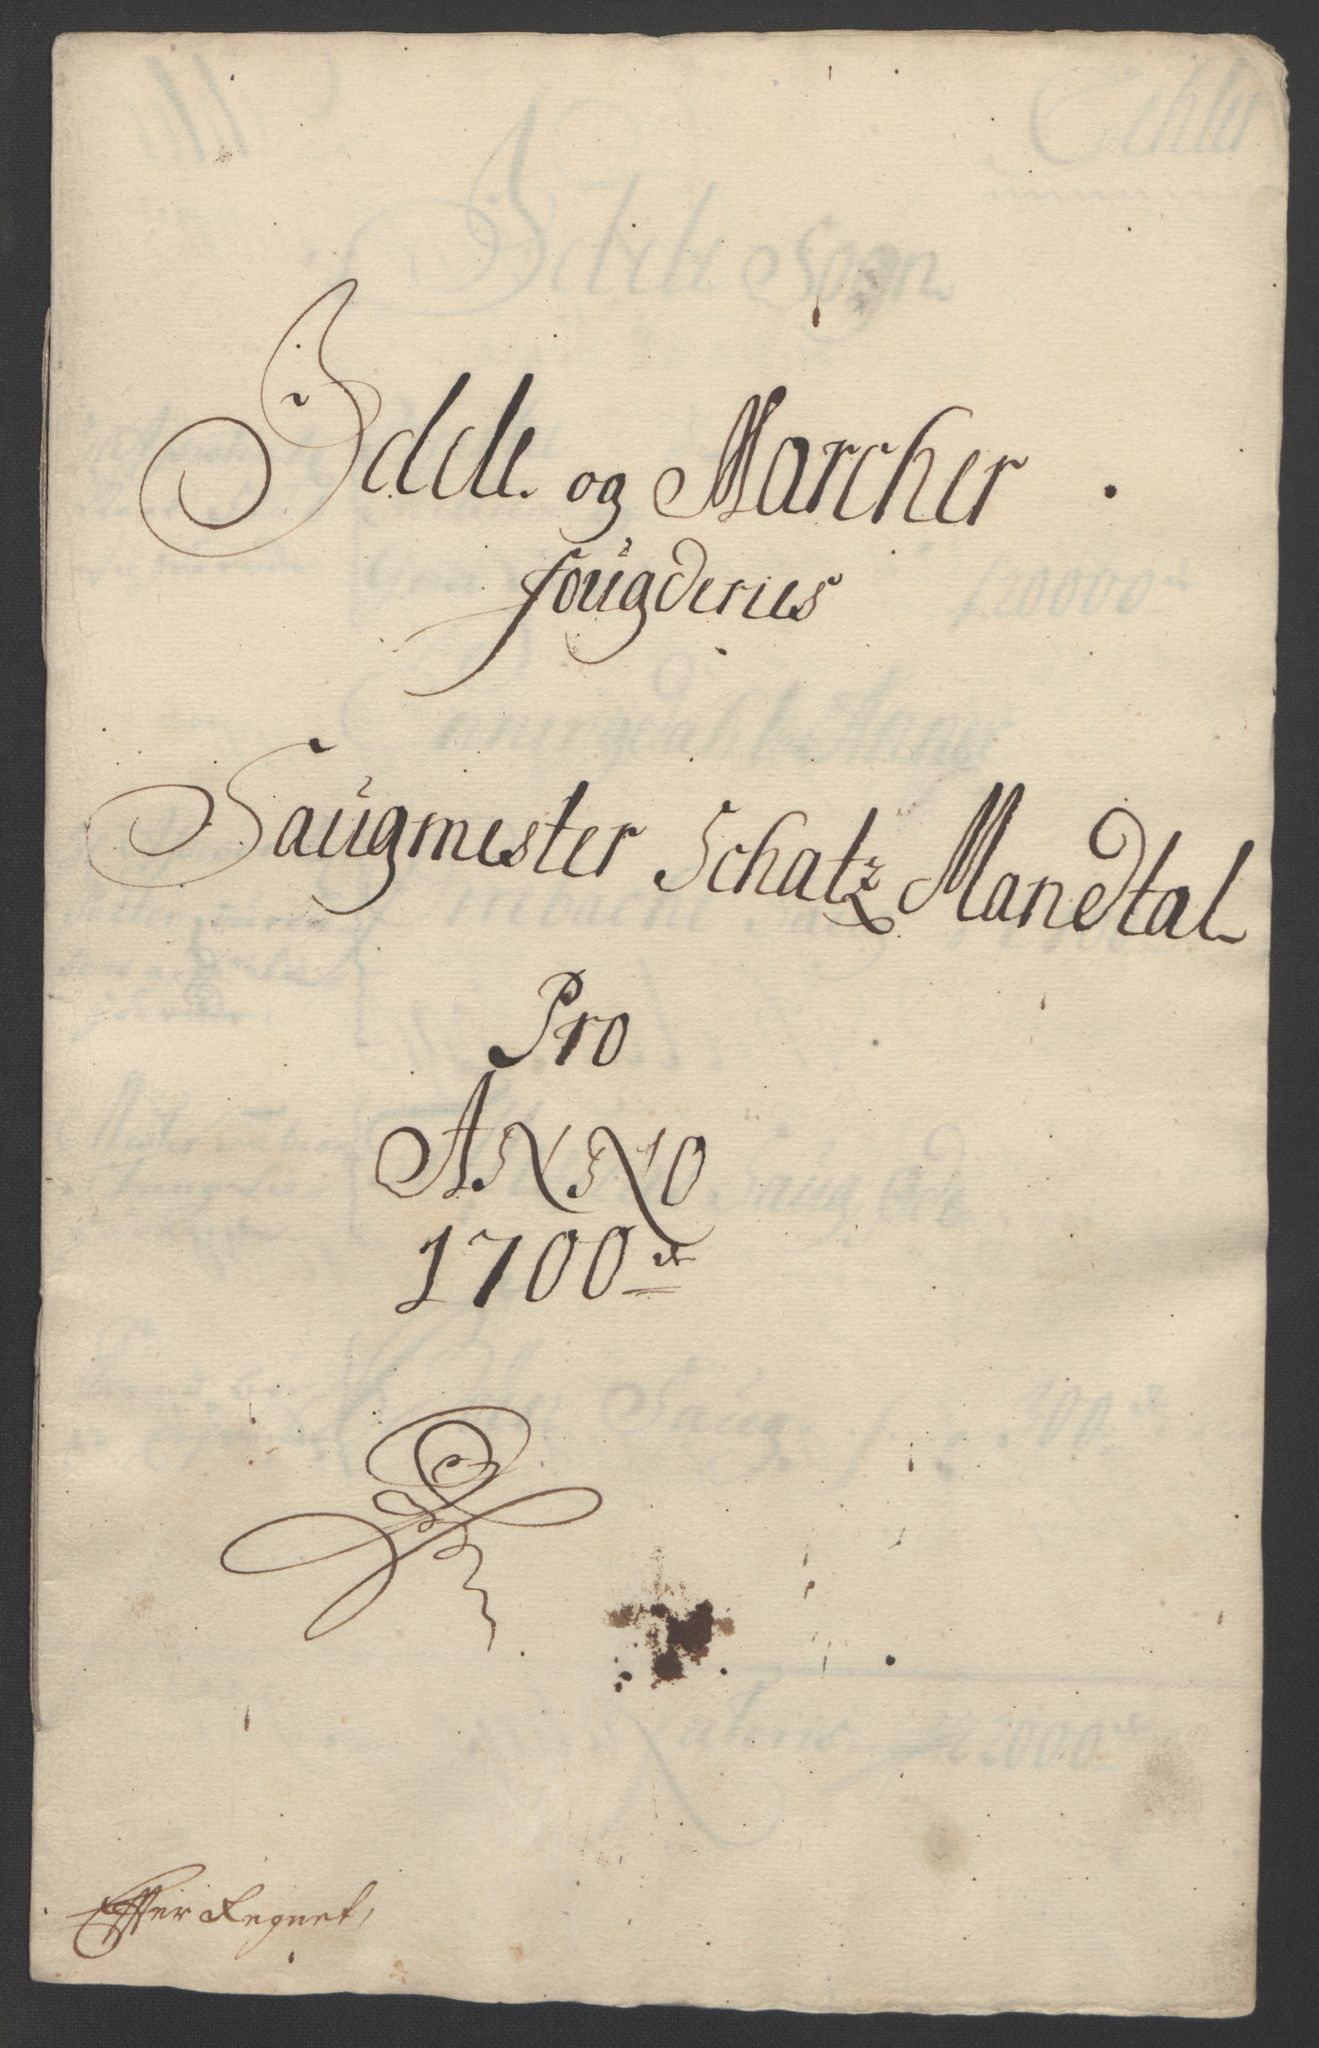 Idde og Marcher
fougderies
Saugmester Schatz Mandtal
Pro
ANNO
1700de
Effter Regnet,